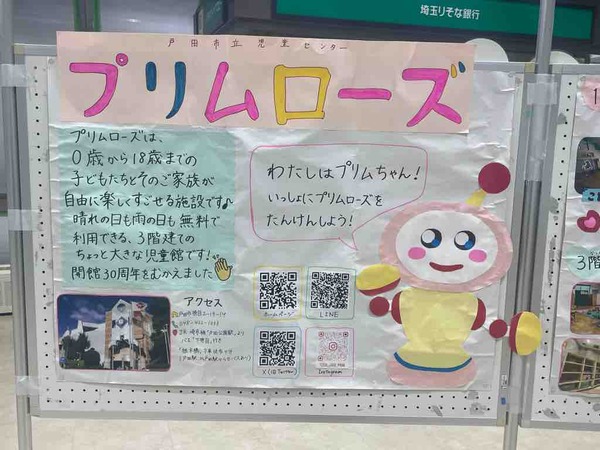 埼玉りそな銀行
戸田市立児童センター
プリムローズ
プリムローズは、
0歳から18歳までの
子どもたちとそのご家族が
自由に楽しくすごせる施設です♪
晴れの日も雨の日も無料で
利用できる、3階建ての
ちょっと大きな児童館です!
開館30周年をむかえました
わたしはプリムちゃん!
いっしょにプリムローズを
たんけんしよう!
アクセス
ホームページ
LINE
X(旧Twitter)
Instagram
3階